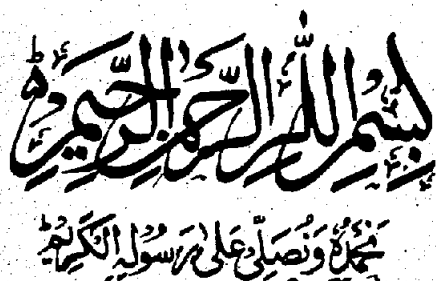 بِسْمِ اللّٰهِ الرَّحْمٰنِ الرَّحِيْمِ
نَحْمَدُهٗ وَنُصَلِّیْ عَلٰی رَسُوْلِهِ الْکَرِیْمِ